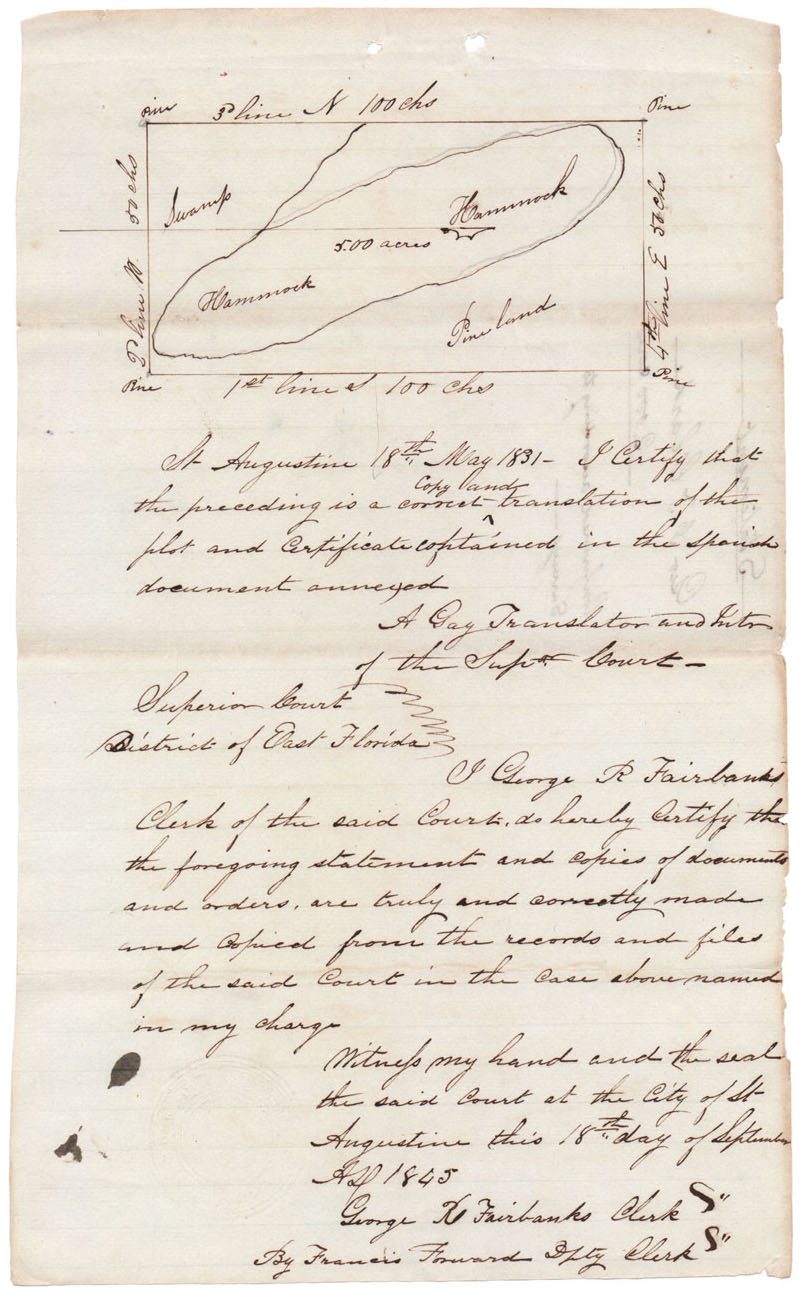 Pine 3d line N 100 chs Pine
2d line W. 50 chs
Swamp
Hammock
500 acres
Hammock
Pine land
4th line E 50 chs
Pine 1st line S 100 chs Pine
St Augustine 18th May 1831 - I Certify that
the preceding is a correct ^ Copy and translation of the
plot and Certificate contained in the Spanish
document annexed
A Gay Translator and Intr
of the Supr Court -
Superior Court
District of East Florida
I George R Fairbanks
Clerk of the said Court, do hereby Certify the
the foregoing statement and copies of documents
and orders, are truly and correctly made
and Copied from the records and files
of the said Court in the case above named
in my charge
Witness my hand and the seal
the said Court at the City of St
Augustine this 18th day of September
AD 1845
George R Fairbanks Clerk
By Francis Forward Dpty Clerk